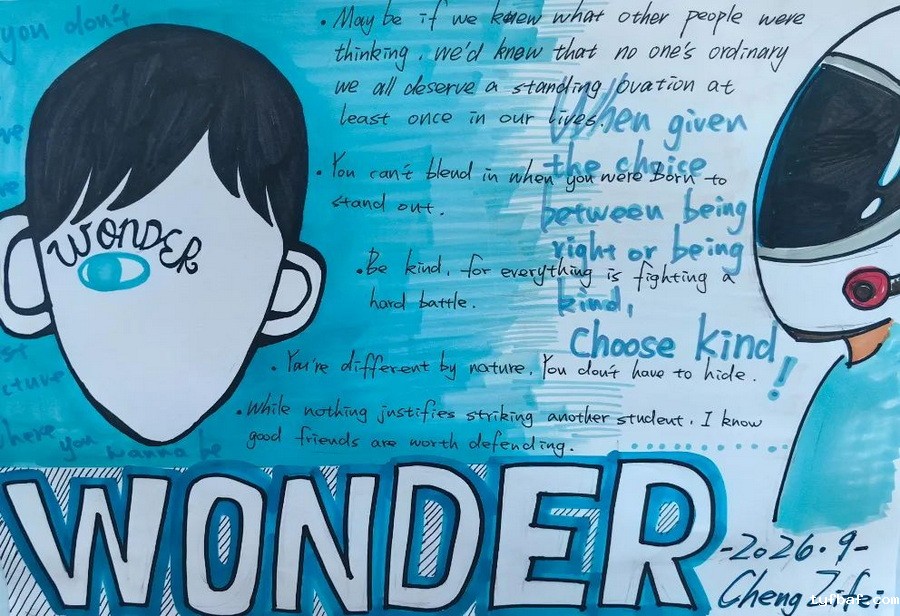 you don't
WONDER
• May be if we knew what other people were
thinking, we'd knew that no one's ordinary
we all deserve a standing ovation at
least once in our lives.
• You can't blend in when you were Born to
stand out.
• Be kind, for everything is fighting a
hard battle.
• You're different by nature, You don't have to hide.
• While nothing justifies striking another student, I know
good friends are worth defending.
When given
the choice
between being
right or being
kind,
Choose kind!
where you wanna be
WONDER
-2026.9-
Cheng Zifei